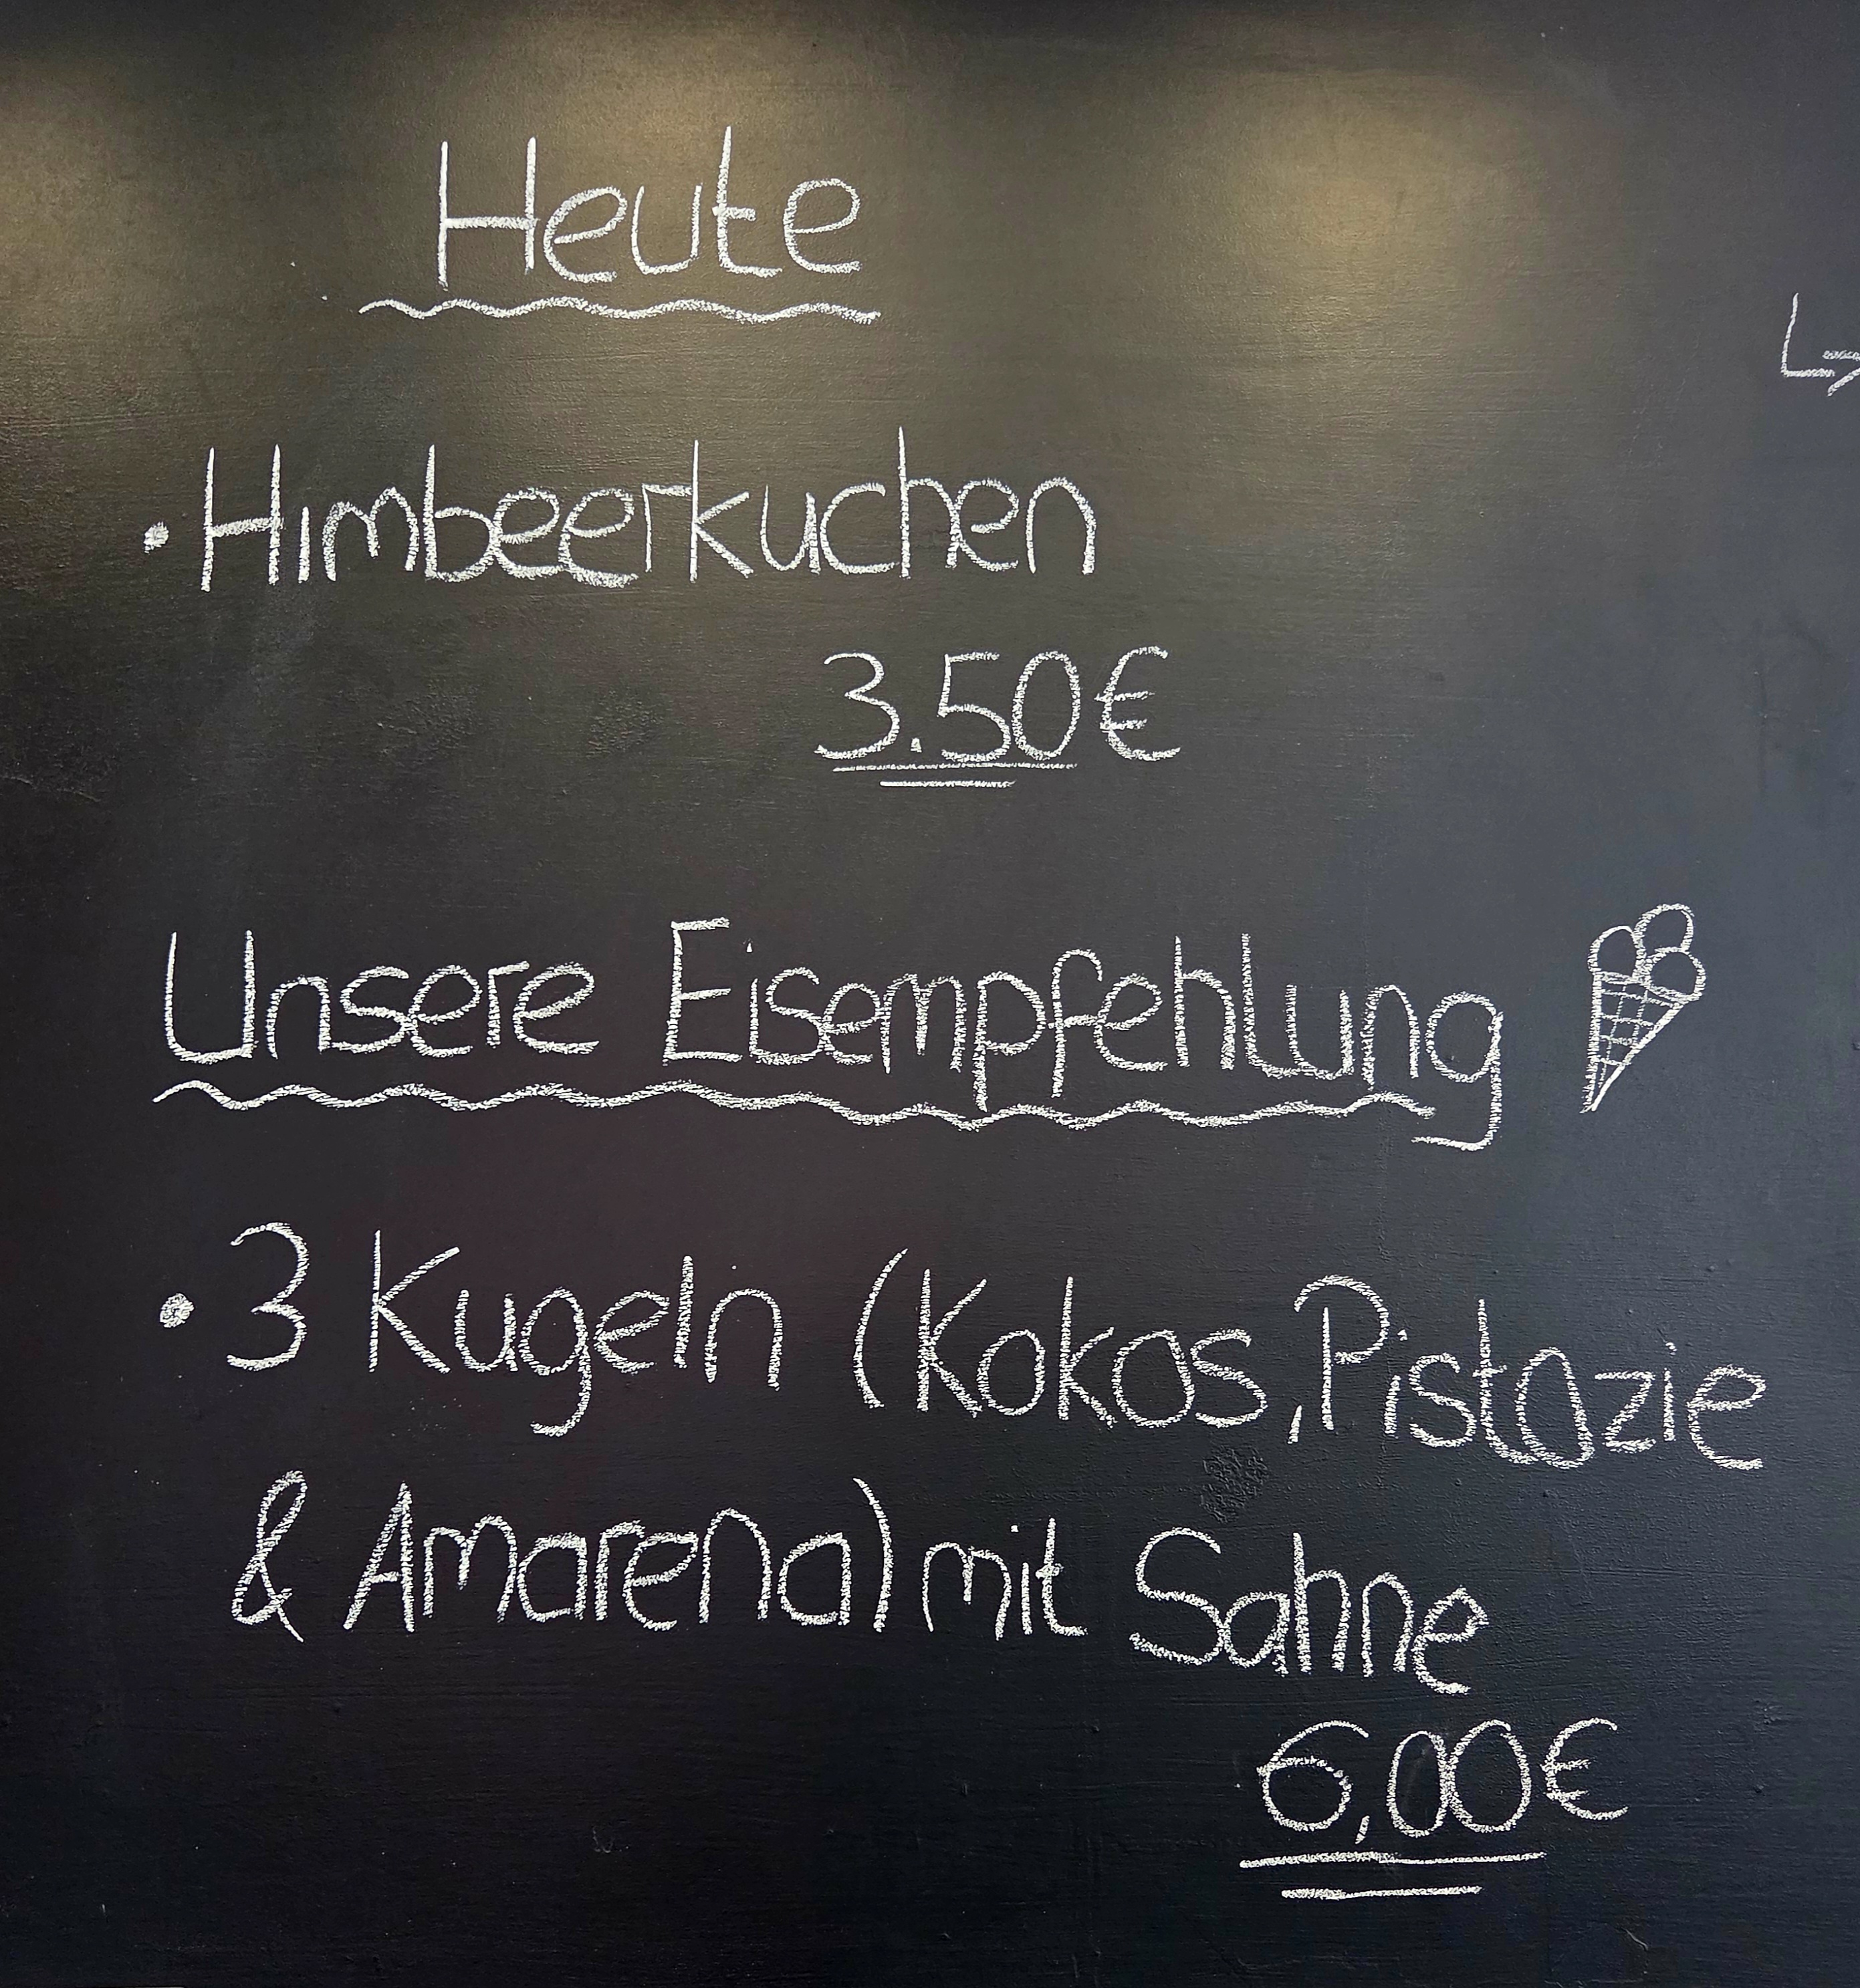 Heute
• Himbeerkuchen
3.50€
Unsere Eisempfehlung
• 3 Kugeln (Kokos, Pistazie
& Amarena) mit Sahne
6,00€